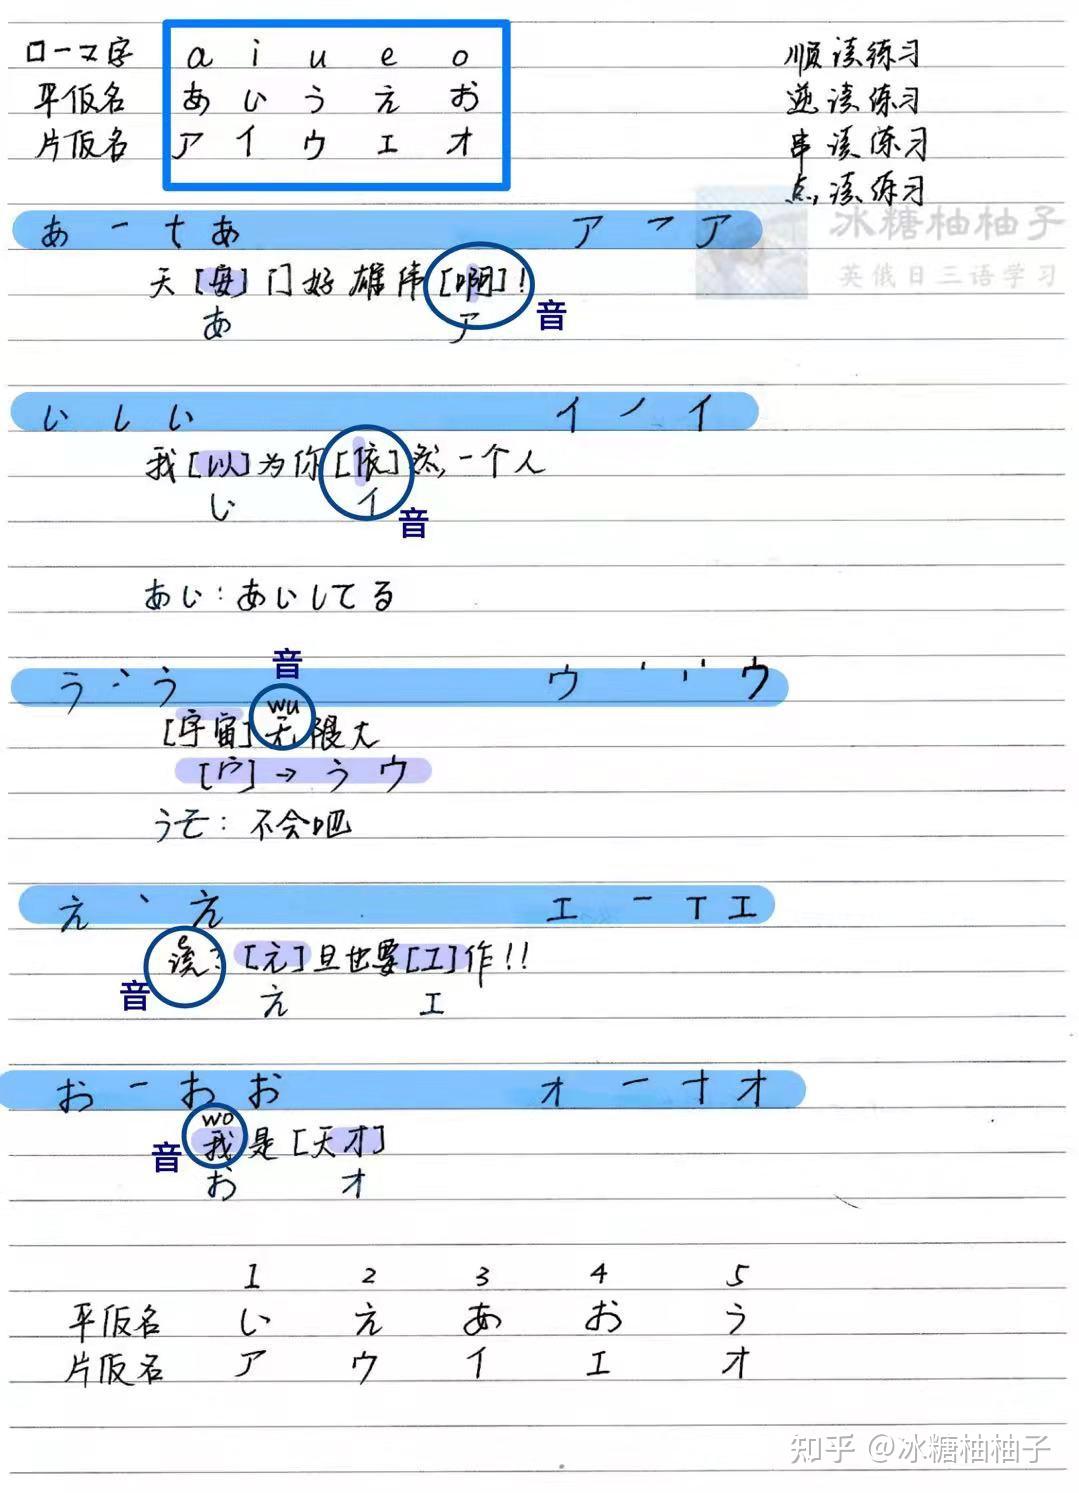 ローマ字 a i u e o 顺读练习
平仮名 あ い う え お 逆读练习
片仮名 ア イ ウ エ オ 串读练习
点读练习
冰糖柚柚子
英俄日三语学习
あ 一 t あ ア フ ア
天[安]门好雄伟[啊]!
あ ア 音
い し い イ ノ イ
我[以]为你[依]然一个人
い イ 音
あい:あいしてる
音
う 丶 う ウ 丶 ウ
wu
[宇宙]无限大
[宀]→うウ
うそ:不会吧
え 丶 え エ 一 T エ
e
读:[元]旦也要[工]作!!
音 え エ
お 一 お お オ 一 ナ オ
wo
音 我是[天才]
お オ
1 2 3 4 5
平仮名 い え あ お う
片仮名 ア ウ イ エ オ
知乎 @冰糖柚柚子